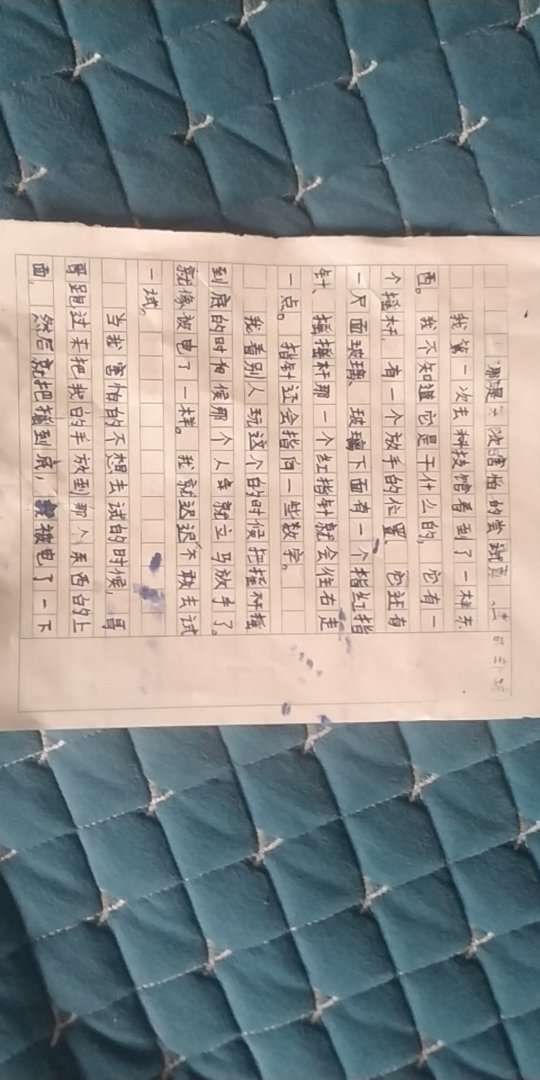 那是一次害怕的尝试
我第一次去科技馆看到了一样东
西。我不知道它是干什么的，它有一
个摇杆，有一个放手的位置，它还有
一尺面玻璃、玻璃下面有一个指红指
针、摇摇杆那一个红指针就会往右走
一点。指针还会指向一些数字。
我看别人玩这个的时候把摇杆摇
到底的时候那个人就立马放手了。
就像被电了一样。我就迟迟不敢去试
一试。
当我害怕的不想去试的时候，哥
哥跑过来把我的手放到那个东西的上
面，然后就把摇到底，被电了一下